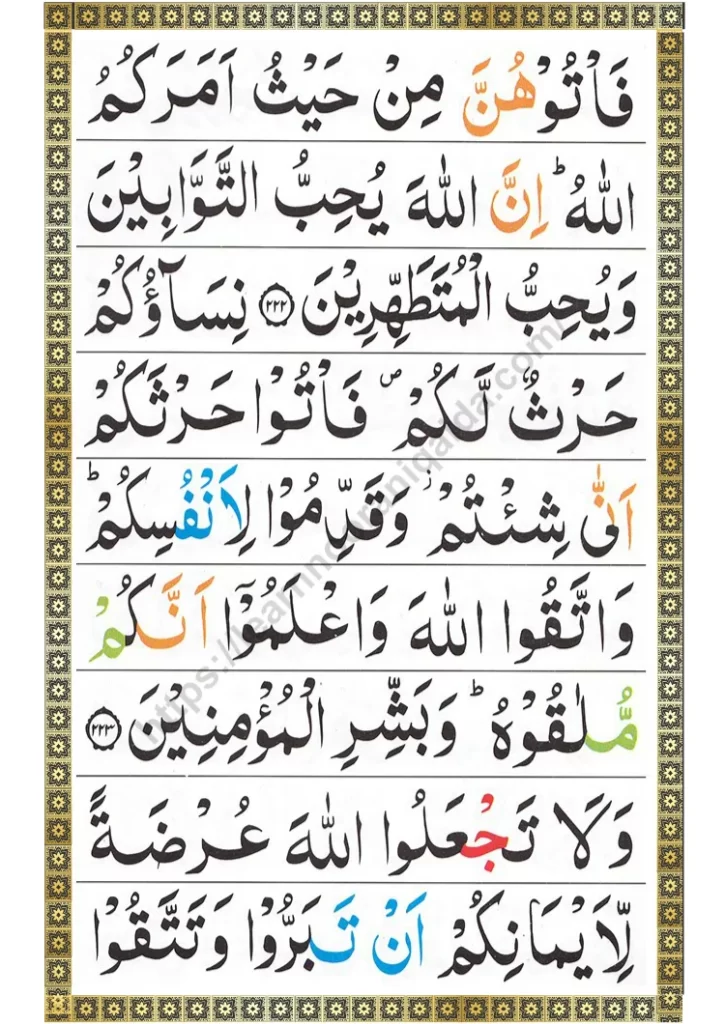 فَاْتُوْهُنَّ مِنْ حَيْثُ اَمَرَكُمُ
اللّٰهُ ؕ اِنَّ اللّٰهَ يُحِبُّ التَّوَّابِيْنَ
وَيُحِبُّ الْمُتَطَهِّرِيْنَ ﴿۲۲۲﴾ نِسَآؤُكُمْ
حَرْثٌ لَّكُمْ ۪ فَاْتُوْا حَرْثَكُمْ
اَنّٰى شِئْتُمْ ؗ وَقَدِّمُوْا لِاَنْفُسِكُمْ ؕ
وَاتَّقُوا اللّٰهَ وَاعْلَمُوْۤا اَنَّكُمْ
مُّلٰقُوْهُ ؕ وَبَشِّرِ الْمُؤْمِنِيْنَ ﴿۲۲۳﴾
وَلَا تَجْعَلُوا اللّٰهَ عُرْضَةً
لِّاَيْمَانِكُمْ اَنْ تَبَرُّوْا وَتَتَّقُوْا
https://learnnooraniqaida.com/